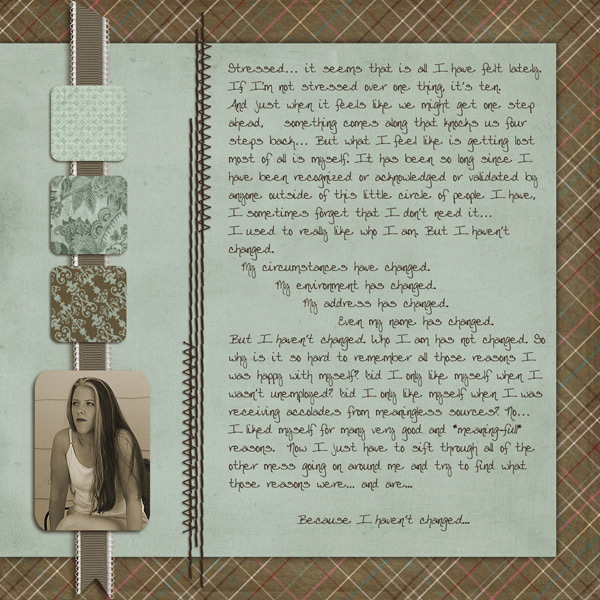 Stressed... it seems that is all I have felt lately.
If I'm not stressed over one thing, it's ten.
And just when it feels like we might get one step
ahead, something comes along that knocks us four
steps back... But what I feel like is getting lost
most of all is myself. It has been so long since I
have been recognized or acknowledged or validated by
anyone outside of this little circle of people I have,
I sometimes forget that I don't need it...
I used to really like who I am. But I haven't
changed.
My circumstances have changed.
My environment has changed.
My address has changed.
Even my name has changed.
But I haven't changed. Who I am has not changed. So
why is it so hard to remember all those reasons I
was happy with myself? Did I only like myself when I
wasn't unemployed? Did I only like myself when I was
receiving accolades from meaningless sources? No...
I liked myself for many very good and *meaning-full*
reasons. Now I just have to sift through all of the
other mess going on around me and try to find what
those reasons were... and are...
Because I haven't changed...